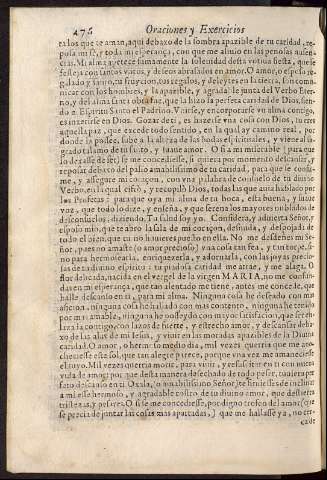 276 Oraciones y Exercicios
ra los que te aman, aqui debaxo de la sombra apazible de tu caridad, re-
posa mi fé, y toda mi esperança, con que me aliuio en las penosas ausen-
cias. Mi alma apetece sumamente la solenidad desta votiua fiesta, que se
festeja con santas vozes, y deseos abrasados en amor. O amor,
comu-
nicar con los hombres, y la apazible, y agradable junta del Verbo Eter-
no, y del alma que la hizo la perfeta caridad de Dios, sien-
do el Espiritu Santo el Padrino. Vnirse, y encorporarse vn alma contigo,
es inxerirse en Dios. Gozar de ti, es hazerse vna cosa con Dios,
aquella paz, que excede todo sentido, en la qual ay camino real, por
donde se sube a la alteza de las bodas espirituales, y viene al
agradable talamo de tu santo, y suaue amor. O si a mi miserable (para que
lo dexasse de ser) se me concediesse, si quiera por momento descansar, y
reposar debaxo del palio amabilissimo de tu caridad, para que le consue-
me, y assegure mi coraçon, con vna palabra de consuelo de tu diuino
Verbo, en la qual cifrò, y recopilò Dios, todas las que auia hablado por
los Profetas: para que oya mi alma de tu boca, esta buena, y suaue
voz, que todo lo dize, y enseña, y que serena los mayores nublados de
desconsuelos, diziendo. Tu salud soy yo. Considera, y aduierta Señor, y
esposo mio, que te abro la sala de mi coraçon, desnuda, y despojada de
todo el bien, que tu no huuieres puesto en ella. No me deseches mi Se-
ñor, pues no amaste (o amor precioso) vna cosa tan fea, y tan torpe, si-
no para hermosearla, enriquecerla, y adornarla, con las joyas precio-
sas de tu diuino espiritu: tu piadosa caridad me atrae, y me alegra. O
flor delicada, nacida en el vergel de la virgen MARIA, no me confun-
das en mi esperança, que tan alentado me tiene, antes me concede, que
halle descanso en ti, para mi alma. Ninguna cosa he deseado con mas
aficion, ninguna cosa he hallado con mas contento, ninguna he tenido
por mas amable, ninguna he posseydo con mayor satisfacion, que ser en-
laza la contigo, con lazos de fuerte, y estrecho amor, y descansar deba-
xo de las alas de mi Iesus, y viuir en las moradas apazibles de la Diuina
caridad. O amor, o hermoso medio dia, mil vezes querria que me ano-
checiesse este sol, que tan alegre parece, porque vna vez me amaneciesse
el tuyo. Mil vezes querria morir, para viuir, y en
vida de amor: por que desta manera desechado de todo pesar, tuuiera per-
feto descanso en ti. Oxala, o amabilissimo Señor, te siruiesses de inclinar
a mi esse hermoso, y agradable rostro de tu diuino amor, que destierra
tristezas, y pesares. O si se me concediesse, por digno trofeo del amor (que
se precia de juntar las cosas mas apartadas,) que me hallasse ya, no cer-
ca de